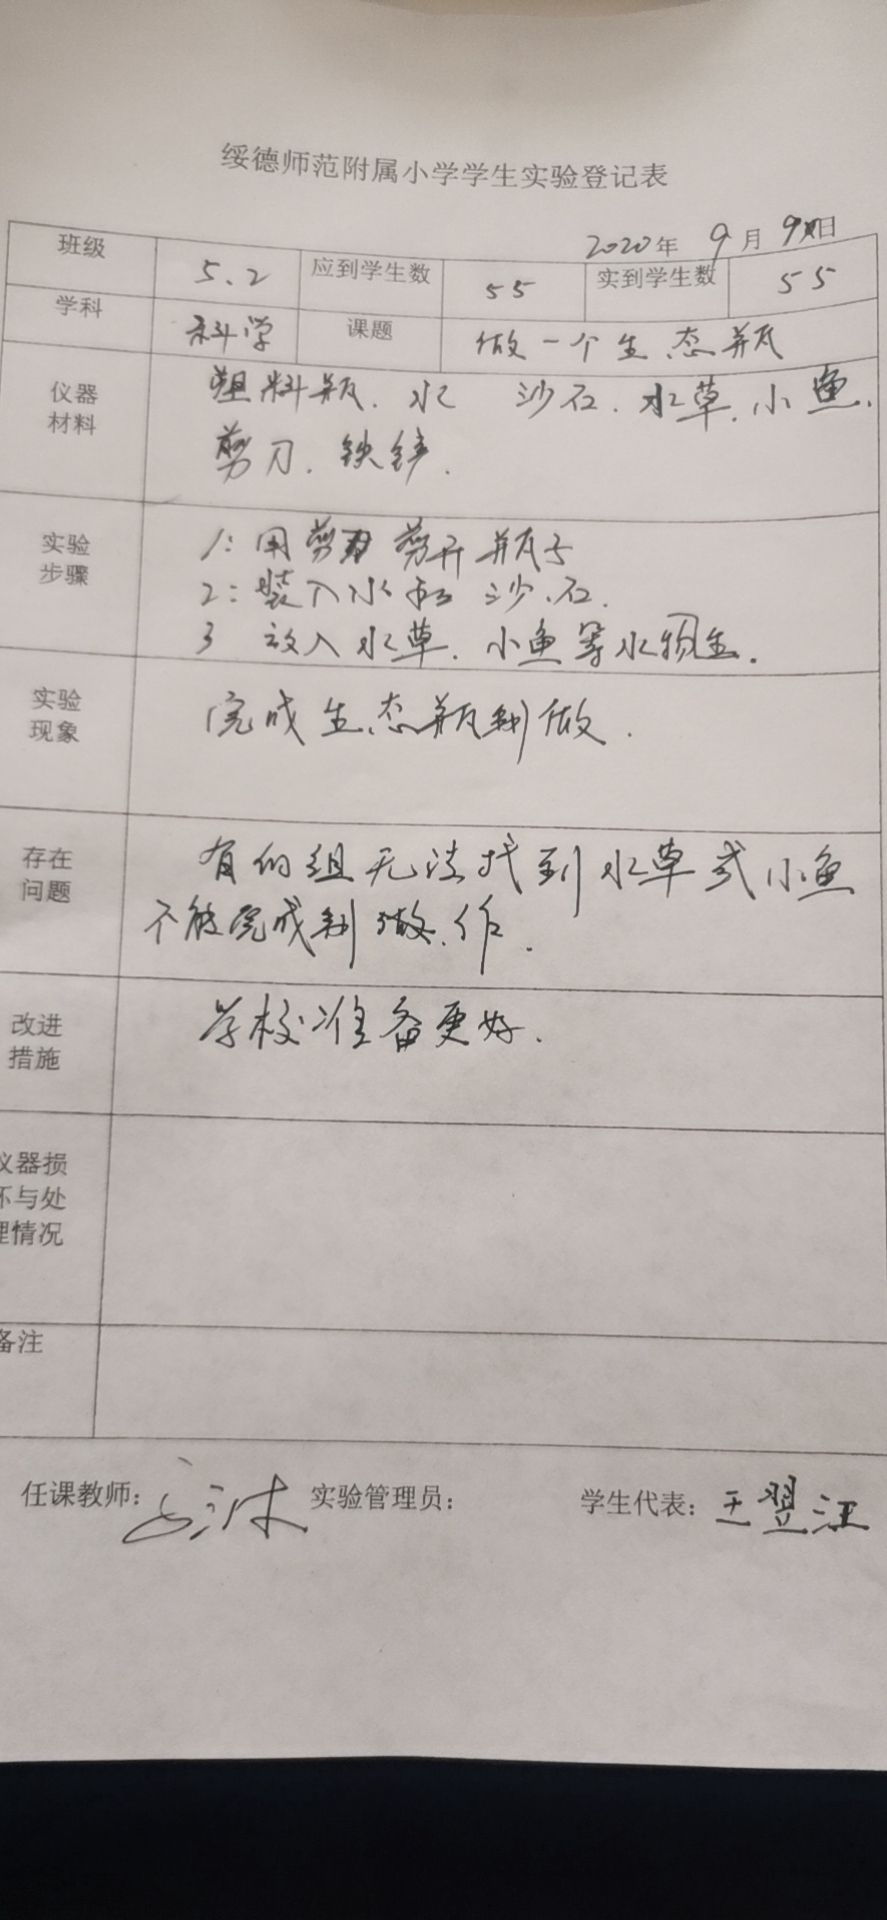 绥德师范附属小学学生实验登记表
2020年 9月 9日
班级 5.2 应到学生数 55 实到学生数 55
学科 科学 课题 做一个生态瓶
仪器 塑料瓶.水 沙石.水草.小鱼.
材料 剪刀.铁锌.
实验 1:用剪刀剪开瓶子
步骤 2:装入水和沙.石.
3 放入水草.小鱼等水物生.
实验 完成生态瓶制做.
现象
存在 有的组无法找到水草或小鱼
问题 不能完成制做.作.
改进 学校准备更好.
措施
仪器损
坏与处
理情况
备注
任课教师: 实验管理员: 学生代表:王翌江